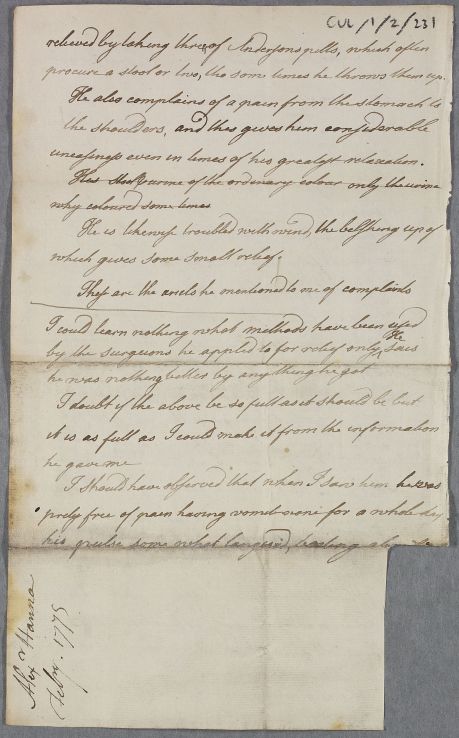 CUL/1/2/231
relieved by taking three of Andersons pills, which often
procure a stool or two, tho some times he throws them up.
He also complains of a pain from the stomach to
the shoulders, and this gives him considerable
uneasiness even in times of his greatest relaxation.
His urine of the ordinary colour only the urine
why coloured some times
He is likewise troubled with wind, the belshing up of
which gives some small relief.
These are the he mentioned to me of complaints
I could learn nothing what methods have been used
by the surgeons he applied to for relief only He Says
he was nothing better by any thing he got
I doubt if the above be so full as it should be but
it is as full as I could make it from the information
he gave me
I should have observed that when I saw him he was
prety free of pain having vomit none for a whole day
his pulse some what languid, beating
Alexr Hanna
Febry. 1775